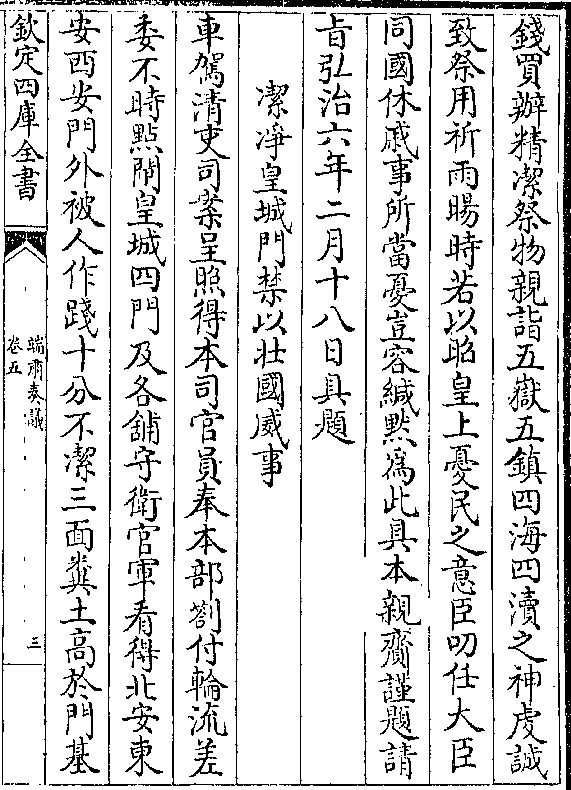 錢買辦精潔祭物親詣五嶽五鎮四海四瀆之神䖍誠
致祭用祈雨暘時若以昭皇上憂民之意臣叨任大臣
同國休戚事所當憂豈容緘黙為此具本親齎謹題請
㫖弘治六年二月十八日具題
潔淨皇城門禁以壯國威事
車駕清吏司案呈照得本司官員奉本部劄付輪流差
委不時點閘皇城四門及各舖守衛官軍看得北安東
安西安門外被人作踐十分不潔三面糞土高於門基
欽定四庫全書
端肅奏議
卷五
三